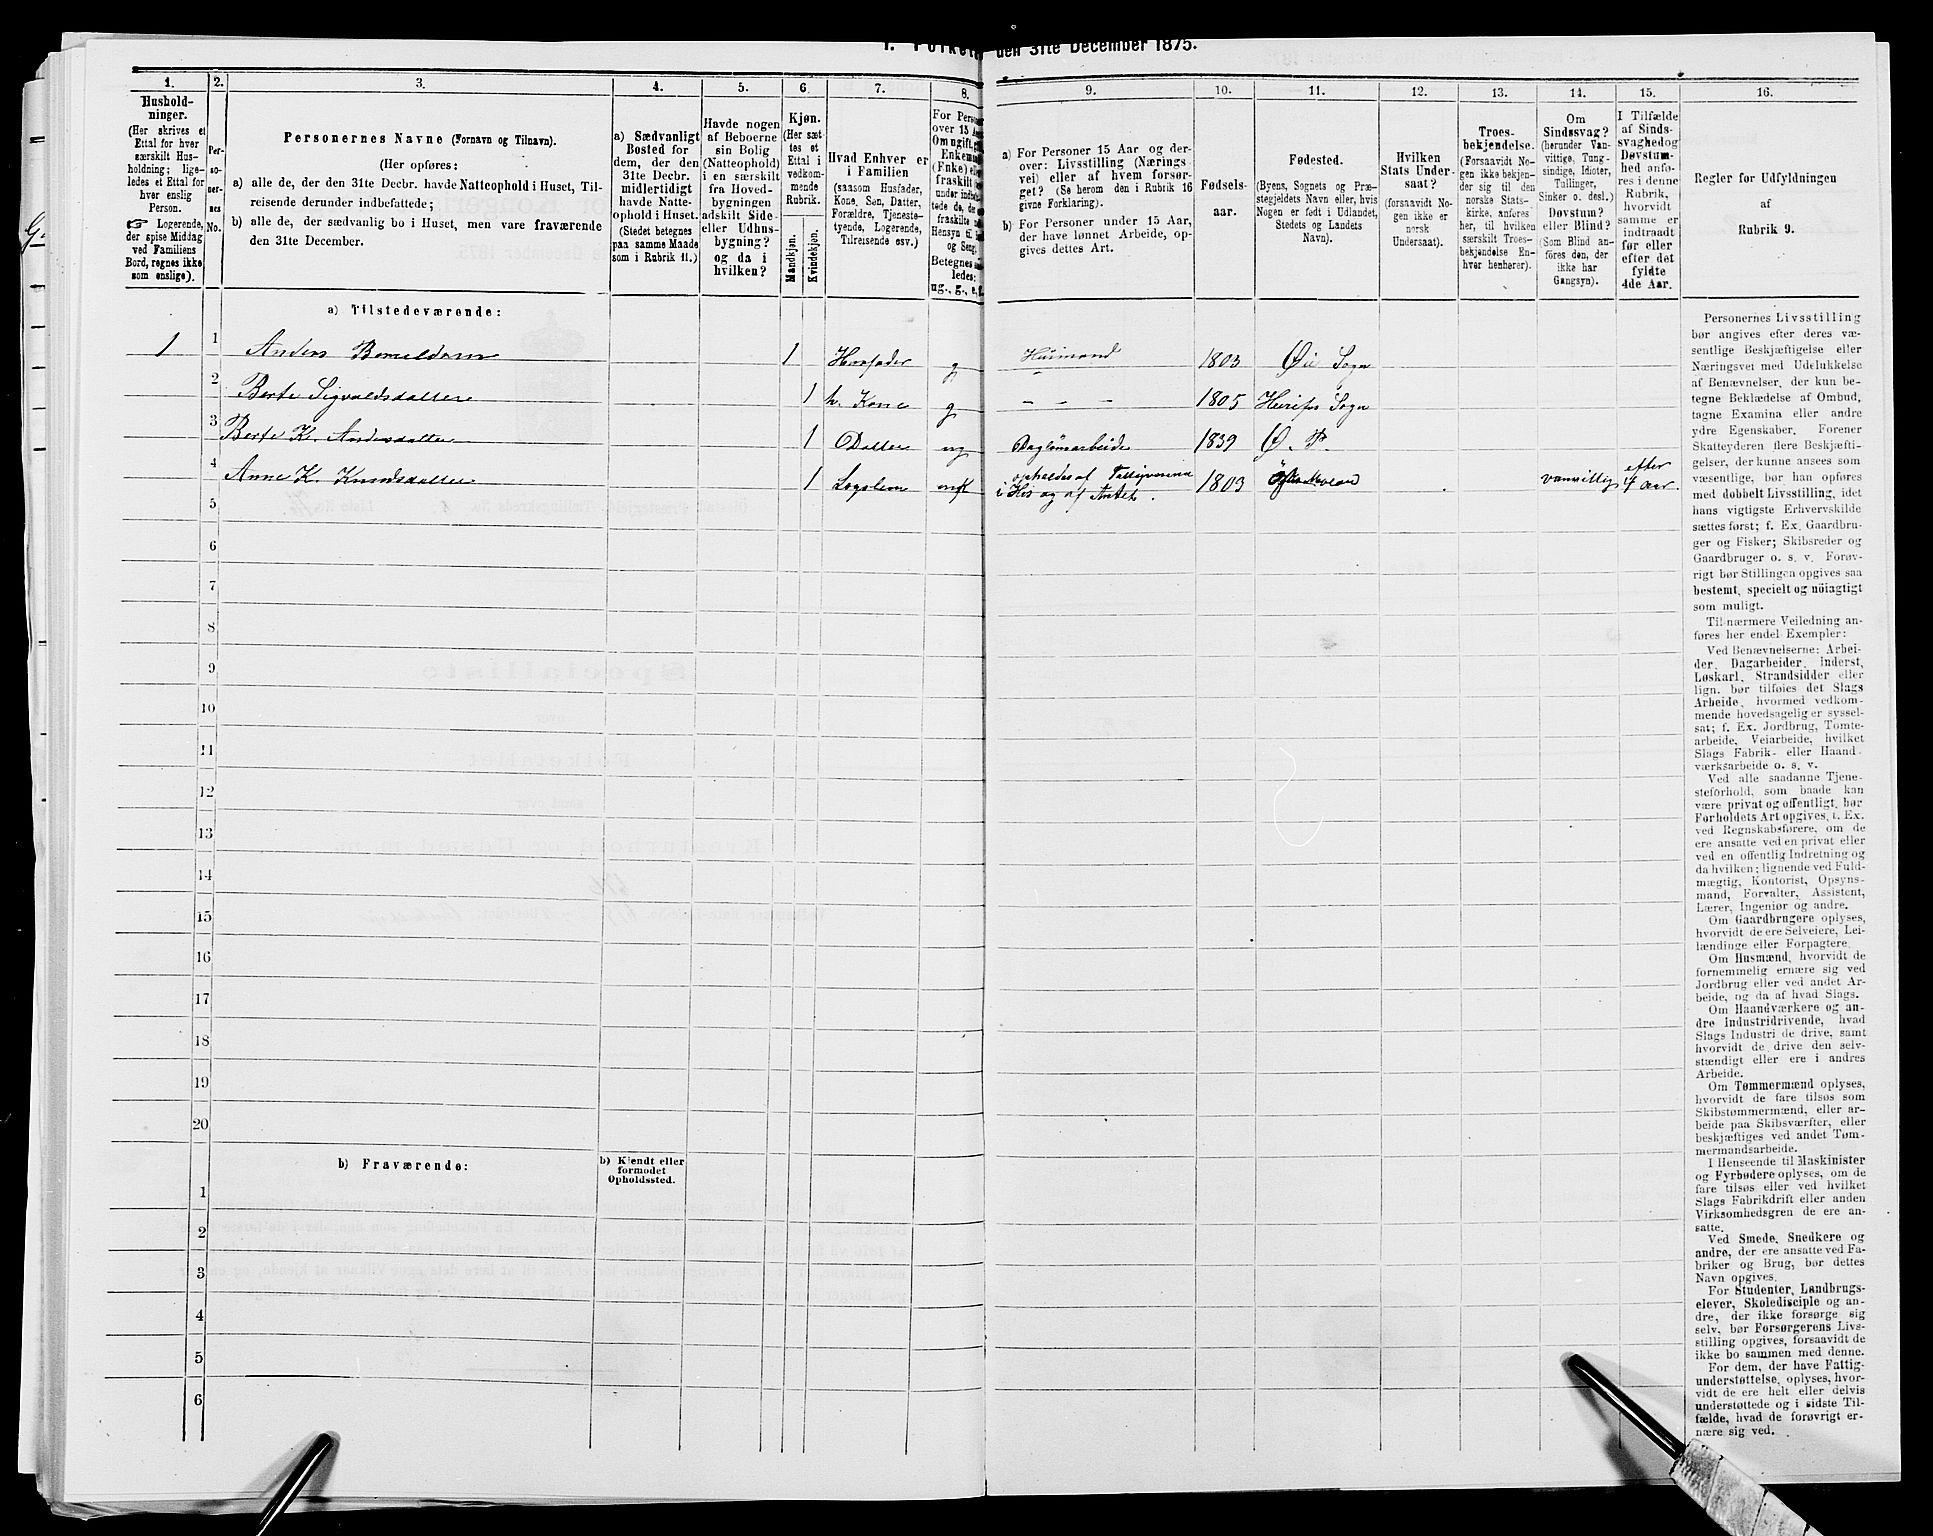 den 31te December 1875.
1. 2. 3. 4. 5. 6. 7. 8. 9. 10. 11. 12. 13. 14. 15. 16.
Hushold-
ninger.
(Her skrives et
Ettal for hver
særskilt Hus-
holdning; lige-
ledes et Ettal for
hver enslig
Person.
☞ Logerende,
der spise Middag
ved Familiens
Bord, regnes ikke
som enslige).
Per-
so-
ner-
nes
No.
Personernes Navne (Fornavn og Tilnavn).
(Her opføres:
a) alle de, der den 31te Decbr. havde Natteophold i Huset, Til-
reisende derunder indbefattede;
b) alle de, der sædvanlig bo i Huset, men vare fraværende
den 31te December.
a) Sædvanligt
Bosted for
dem, der den
31te Decbr.
midlertidigt
havde Natte-
ophold i Huset.
(Stedet betegnes
paa samme Maade
som i Rubrik 11.)
Havde nogen
af Beboerne
sin Bolig
(Natteophold)
i en særskilt
fra Hoved-
bygningen
adskilt Side-
eller Udhus-
bygning?
og da i
hvilken?
Kjøn.
(Her sæt-
tes et
Ettal i
vedkom-
mende
Rubrik.
Mandkjøn.
Kvindekjøn.
Hvad Enhver er
i Familien
(saasom Husfader,
Kone, Søn, Datter,
Forældre, Tjeneste-
tyende, Logerende,
Tilreisende osv.)
For Pers
over 15 A
Om ugift,
Enkem
(Enke) el
fraskilt
Betegnes
ledes:
ug., g., e, f.
a) For Personer 15 Aar og der-
over: Livsstilling (Nærings-
vei) eller af hvem forsør-
get? (Se herom den i Rubrik 16
givne Forklaring).
b) For Personer under 15 Aar,
der have lønnet Arbeide, op-
gives dettes Art.
Fødsels-
aar.
Fødested.
(Byens, Sognets og Præ-
stegjeldets Navn eller, hvis
Nogen er født i Udlandet,
Stedets og Landets
Navn).
Hvilken
Stats Under-
saat?
(forsaavidt No-
gen ikke er
norsk
Undersaat).
Troes-
bekjendelse.
(Forsaavidt No-
gen ikke bekjen-
der sig til den
norske Stats-
kirke, anføres
her, til hvilken
særskilt Troes-
bekjendelse En-
hver henhører).
Om
Sindssvag?
(herunder Van-
vittige, Tung-
sindige, Idioter,
Tullinger,
Sinker o. desl.)
Døvstum?
eller Blind?
(Som Blind an-
føres den, der
ikke har
Gangsyn).
I Tilfælde
af Sinds-
svaghed og
Døvstum-
hed anfø-
res i denne
Rubrik,
hvorvidt
samme er
indtraadt
før eller
efter det
fyldte
4de Aar.
Regler for Udfyldningen
af
Rubrik 9.
a) Tilstedeværende:
1 1 Anders 1 Husfader g Husmand 1803 Øie Sogn
2 Berte Sigvaldsdatter 1 h. Kone g - - - 1805 Sogn
3 Berte K. Andersdatter 1 Datter ug Daglönarbeide 1839 Ø. P.
4 Anne K. Knudsdatter 1 enk 1803 vanvittig efter 4 Aar.
5
6
7
8
9
10
11
12
13
14
15
16
17
18
19
20
b) Fraværende:
b) Kjendt eller
formodet
Opholdssted.
1
2
3
4
5
6
Personernes Livsstilling
bør angives efter deres væ-
sentlige Beskjæftigelse eller
Næringsvei med Udelukkelse
af Benævnelser, der kun be-
tegne Beklædelse af Ombud,
tagne Examina eller andre
ydre Egenskaber. Forener
Skatteyderen flere Beskjæfti-
gelser, der kunne ansees som
væsentlige, bør han opføres
med dobbelt Livsstilling, idet
hans vigtigste Erhvervskilde
sættes først; f. Ex. Gaardbru-
ger og Fisker; Skibsreder og
Gaardbruger o. s. v. Forøv-
rigt bør Stillingen opgives saa
bestemt, specielt og nöiagtigt
som muligt.
Til nærmere Veiledning an-
føres her endel Exempler:
Ved Benævnelserne: Arbei-
der, Dagarbeider, Inderst,
Løskarl, Strandsidder eller
lign. bør tilføies det Slags
Arbeide, hvormed vedkom-
mende hovedsagelig er syssel-
sat; f. Ex. Jordbrug, Tomte-
arbeide, Veiarbeide, hvilket
Slags Fabrik- eller Haand-
værksarbeide o. s. v.
Ved alle saadanne Tjene-
steforhold, som baade kan
være privat og offentligt, bør
Forholdets Art opgives, t. Ex.
ved Regnskabsførere, om de
ere ansatte ved en privat eller
ved en offentlig Indretning og
da hvilken; lignende ved Fuld-
mægtig, Kontorist, Opsyns-
mand, Forvalter, Assistent,
Lærer, Ingeniør og andre.
Om Gaardbrugere oplyses,
hvorvidt de ere Selveiere, Lei-
lændinge eller Forpagtere.
Om Husmænd, hvorvidt de
fornemmelig ernære sig ved
Jordbrug eller ved andet Ar-
beide, og da af hvad Slags.
Om Haandværkere og an-
dre Industridrivende, hvad
Slags Industri de drive, samt
hvorvidt de drive den selv-
stændigt eller ere i andres
Arbeide.
Om Tømmermænd oplyses,
hvorvidt de fare tilsøs som
Skibstømmermænd, eller ar-
beide paa Skibsværfter, eller
beskjæftiges ved andet Tøm-
mermandsarbeide.
I Henseende til Maskinister
og Fyrbødere oplyses, om de
fare tilsøs eller ved hvilket
Slags Fabrikdrift eller anden
Virksomhedsgren de ere an-
satte.
Ved Smede, Snedkere og
andre, der ere ansatte ved Fa-
briker og Brug, bør dettes
Navn opgives.
For Studenter, Landbrugs-
elever, Skoledisciple og an-
dre, der ikke forsørge sig
selv, bør Forsørgerens Livs-
stilling opgives, forsaavidt de
ikke bo sammen med denne.
For dem, der have Fattig-
understøttelse, oplyses, hvor-
vidt de ere helt eller delvis
understøttede og i sidste Til-
fælde, hvad de forøvrigt er-
nære sig ved.